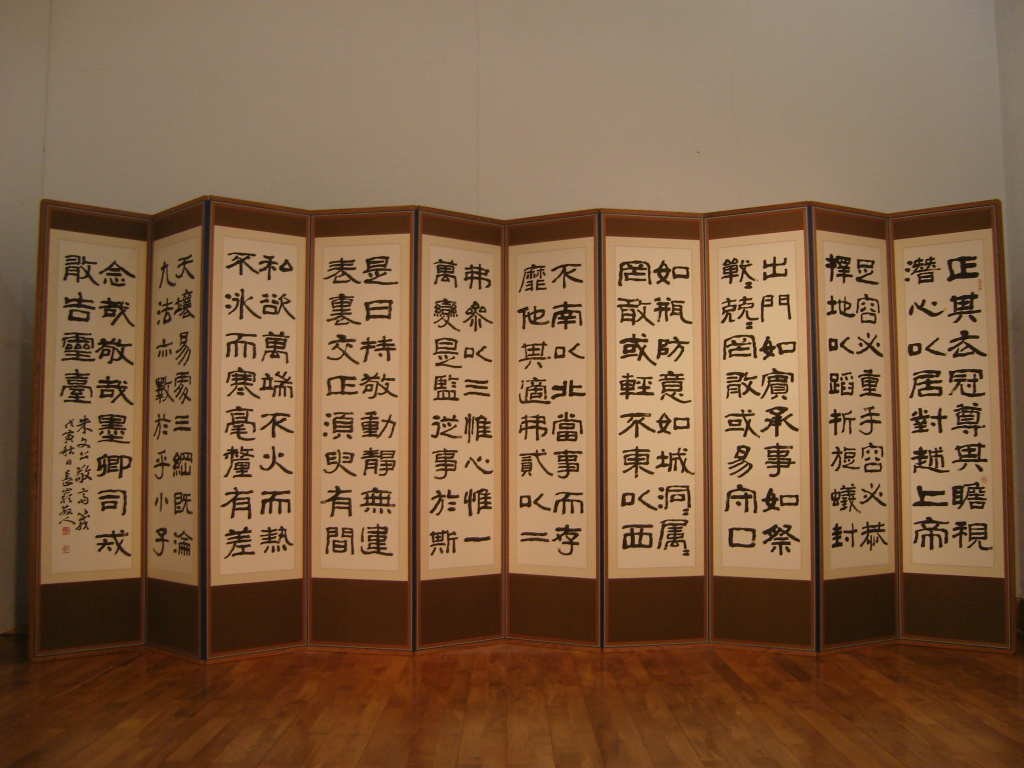 正其衣冠尊其瞻視
潛心以居對越上帝
足容必重手容必恭
擇地以蹈折旋蟻封
出門如賓承事如祭
戰〻兢〻罔敢或易守口
如瓶防意如城洞〻属〻
罔敢或輕不東以西
不南以北當事而存
靡他其適弗貳以二
弗參以三惟心惟一
萬變是監從事於斯
是曰持敬動靜無違
表裏交正須臾有間
私欲萬端不火而熱
不氷而寒毫釐有差
天壤易處三綱既淪
九法亦斁於乎小子
念哉敬哉墨卿司戒
敢告靈臺
朱文公敬齋箴
戊寅秋日